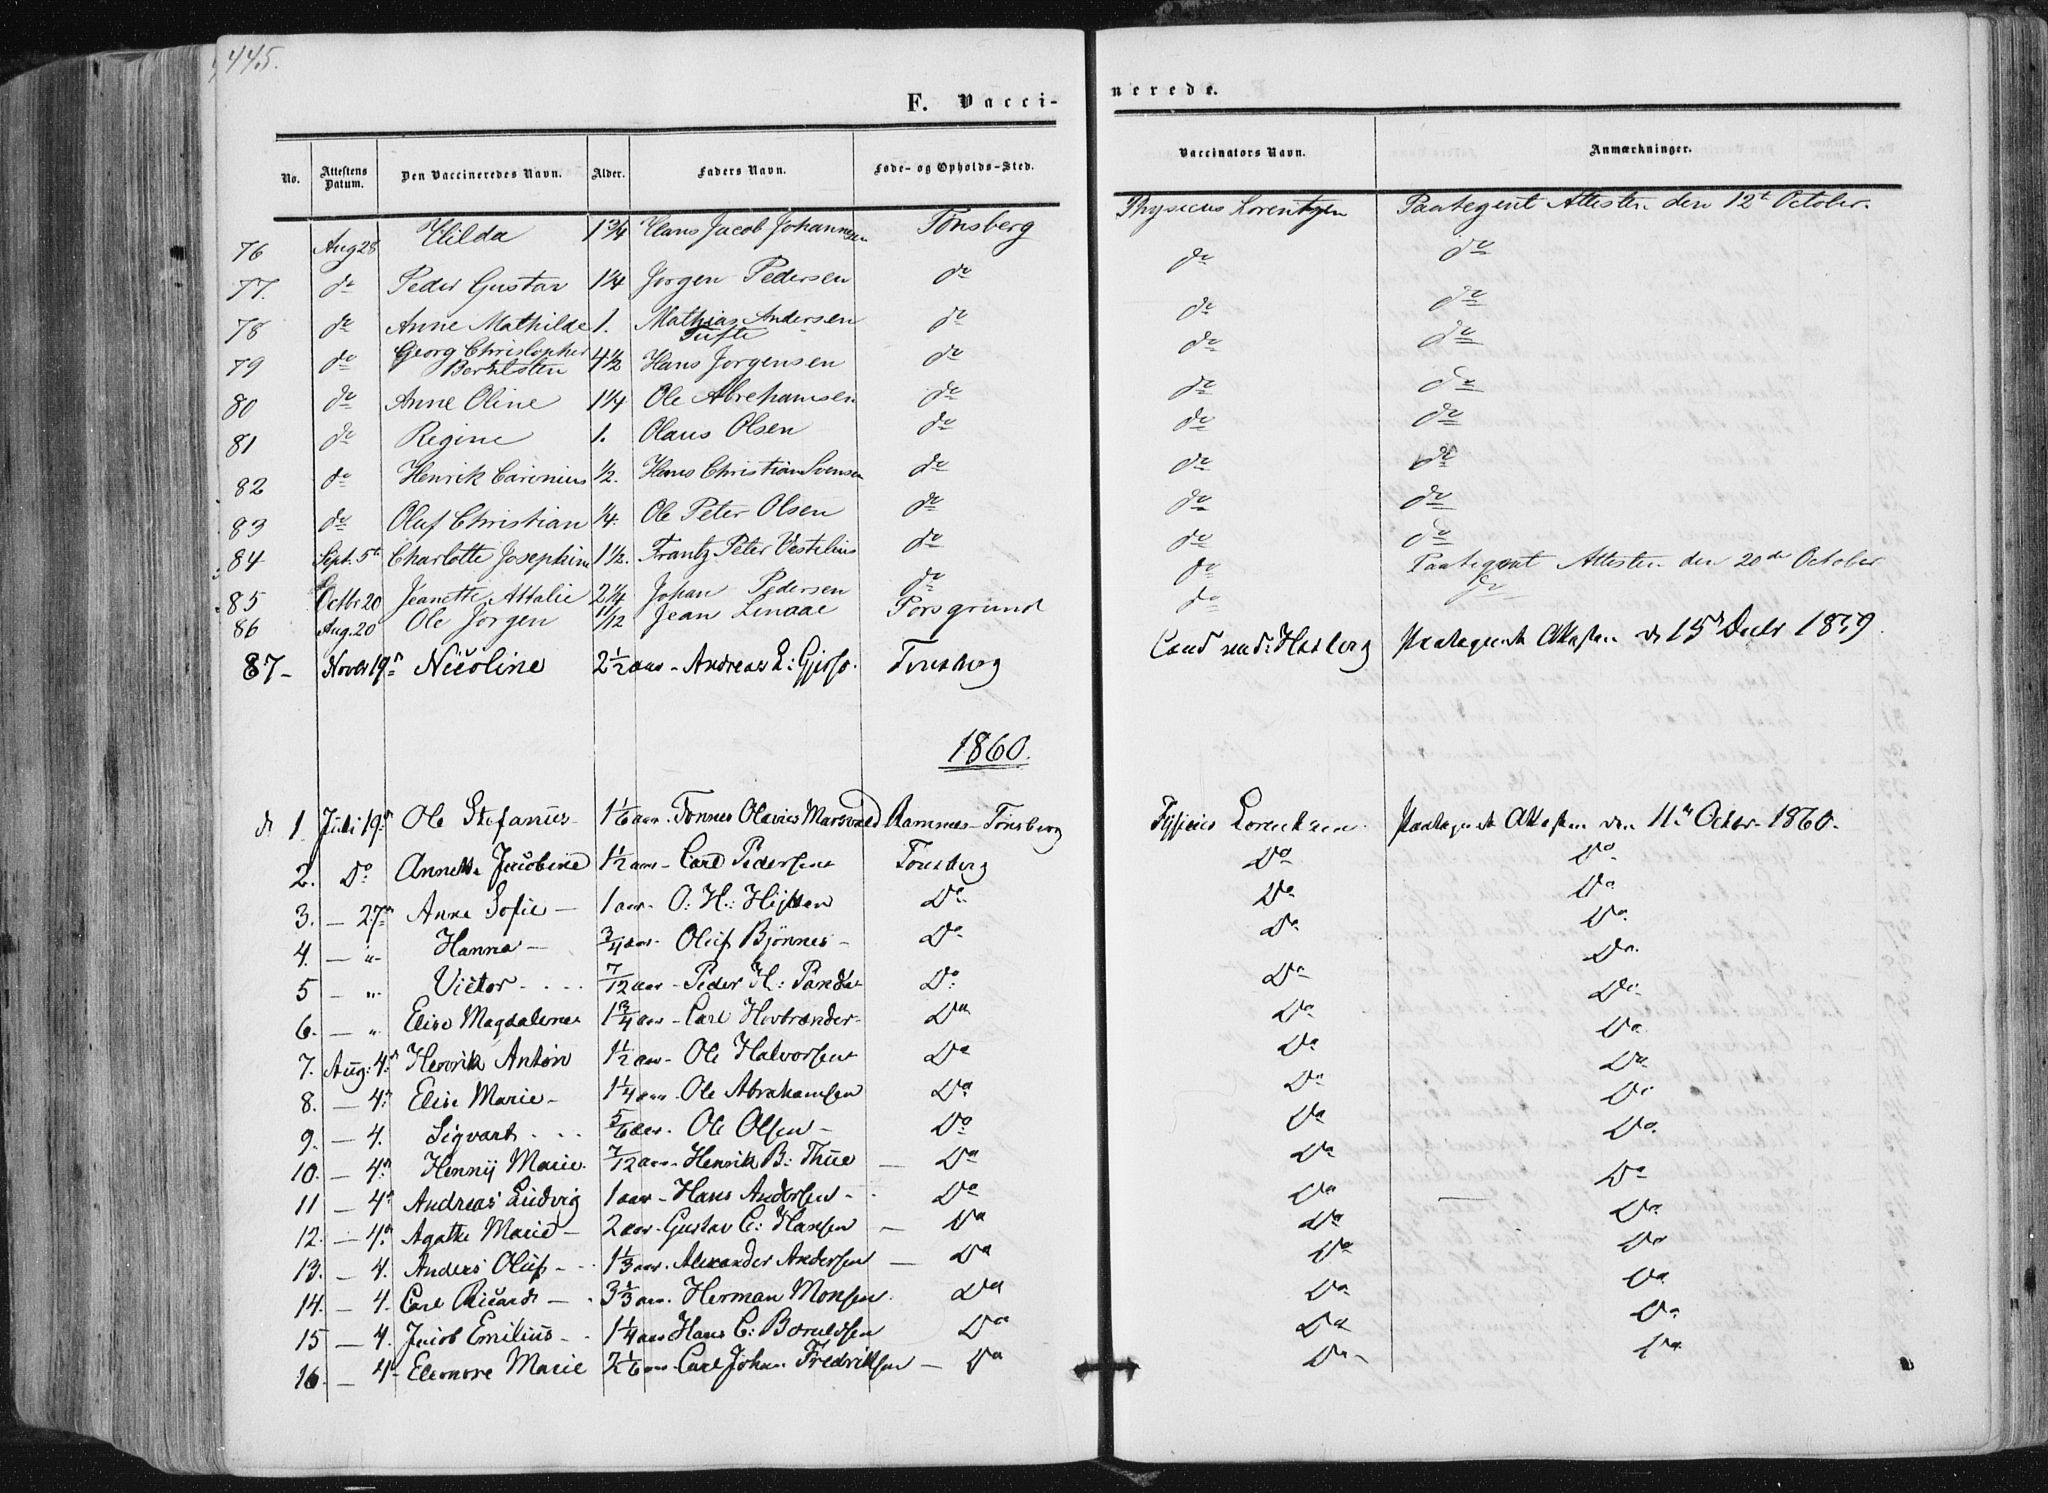 445.
F. Vacci-
nerede.
No. Attestens Datum. Den Vaccineredes Navn. Alder. Faders Navn. Føde- og Opholds-Sted. Vaccinators Navn. Anmærkninger.
76 Aug 28 Hilda 1 3/4 Hans Jacob Johannesen Tønsberg Physicus Lorentzen Paategnt Attesten den 12t October.
77. do Peder Gustav 1 1/4 Jørgen Pedersen do do do
78 do Anne Mathilde 1. Mathias Andersen Tufte do do do
79 do Georg Christopher Berntsten 4 1/2 Hans Jørgensen do do do
80 do Anne Oline 1 1/4 Ole Abrehamsen do do do
81 do Regine 1. Olaus Olsen do do do
82 do Henrik 1/2. Hans Christian Svensen do do do
83 do Oluf Christian 1/4. Ole Peter Olsen do do do
84 Sept. 5t Charlotte Josephine 1 1/2. Frantz Peter Vestelius do do do
85 Octbr 20 Jeanette Attalie 2 1/4 Johan Pedersen do do Paategnt Attesten den 20de October
86 Aug. 20 Ole Jørgen 11/12 Jean Linaae Porsgrund do do
87- Novbr 19n Nicoline 2 1/2 aar - Andreas L: Tønsberg Cand med: Paategnet Attesten d 15n Decbr 1859.
1860.
1. Juli 19n Ole Stefanus- 1 1/6 aar. Tønnes Olavius Ramnes- Tønsberg Fysicus Lorentzen. Paategnet Attesten den 11n Octbr. 1860.
2. Do Annette Jacobine 1 1/2 aar - Carl Pedersen Tønsberg Do Do
3. - 27n Anne Sofie - 1 aar. O: H: Do Do Do
4. - " Hanna - 3/4 aar. Oluf Bjønnes- Do Do Do
5 - " Victor - 7/12 aar - Peder H: Do Do Do
6. - " Elise Magdalena 1 3/4 aar - Carl Hovbrender- Do Do Do
7. Aug: 4n Henrik Anton 1 1/2 aar - Ole Halvorsen Do Do Do
8. - 4n Elise Marie - 1 1/4 aar - Ole Abrahamsen Do Do Do
9. - 4. Sigvart 5/6 aar. Ole Olsen - Do Do Do
10. - 4n Henny Marie. 7/12 aar - Henrik B: Thue - Do Do Do
11 - 4n Andreas Ludvig 1 aar - Hans Andersen - Do Do Do
12. - 4n Agathe Marie - 2 aar. Gustav C: Hansen - Do Do Do
13. - 4. Anders Oluf - 1 1/3 aar. Alexander Andersen - Do Do Do
14. - 4. Carl Ricard - 3 1/3 aar. Herman Monsen. Do Do Do
15 - 4. Jacob Emilius - 1 1/4 aar Hans C: Do Do Do
16. - 4- Eleonore Marie 2 1/6 aar - Carl Johan Fredriksen - Do Do - Do